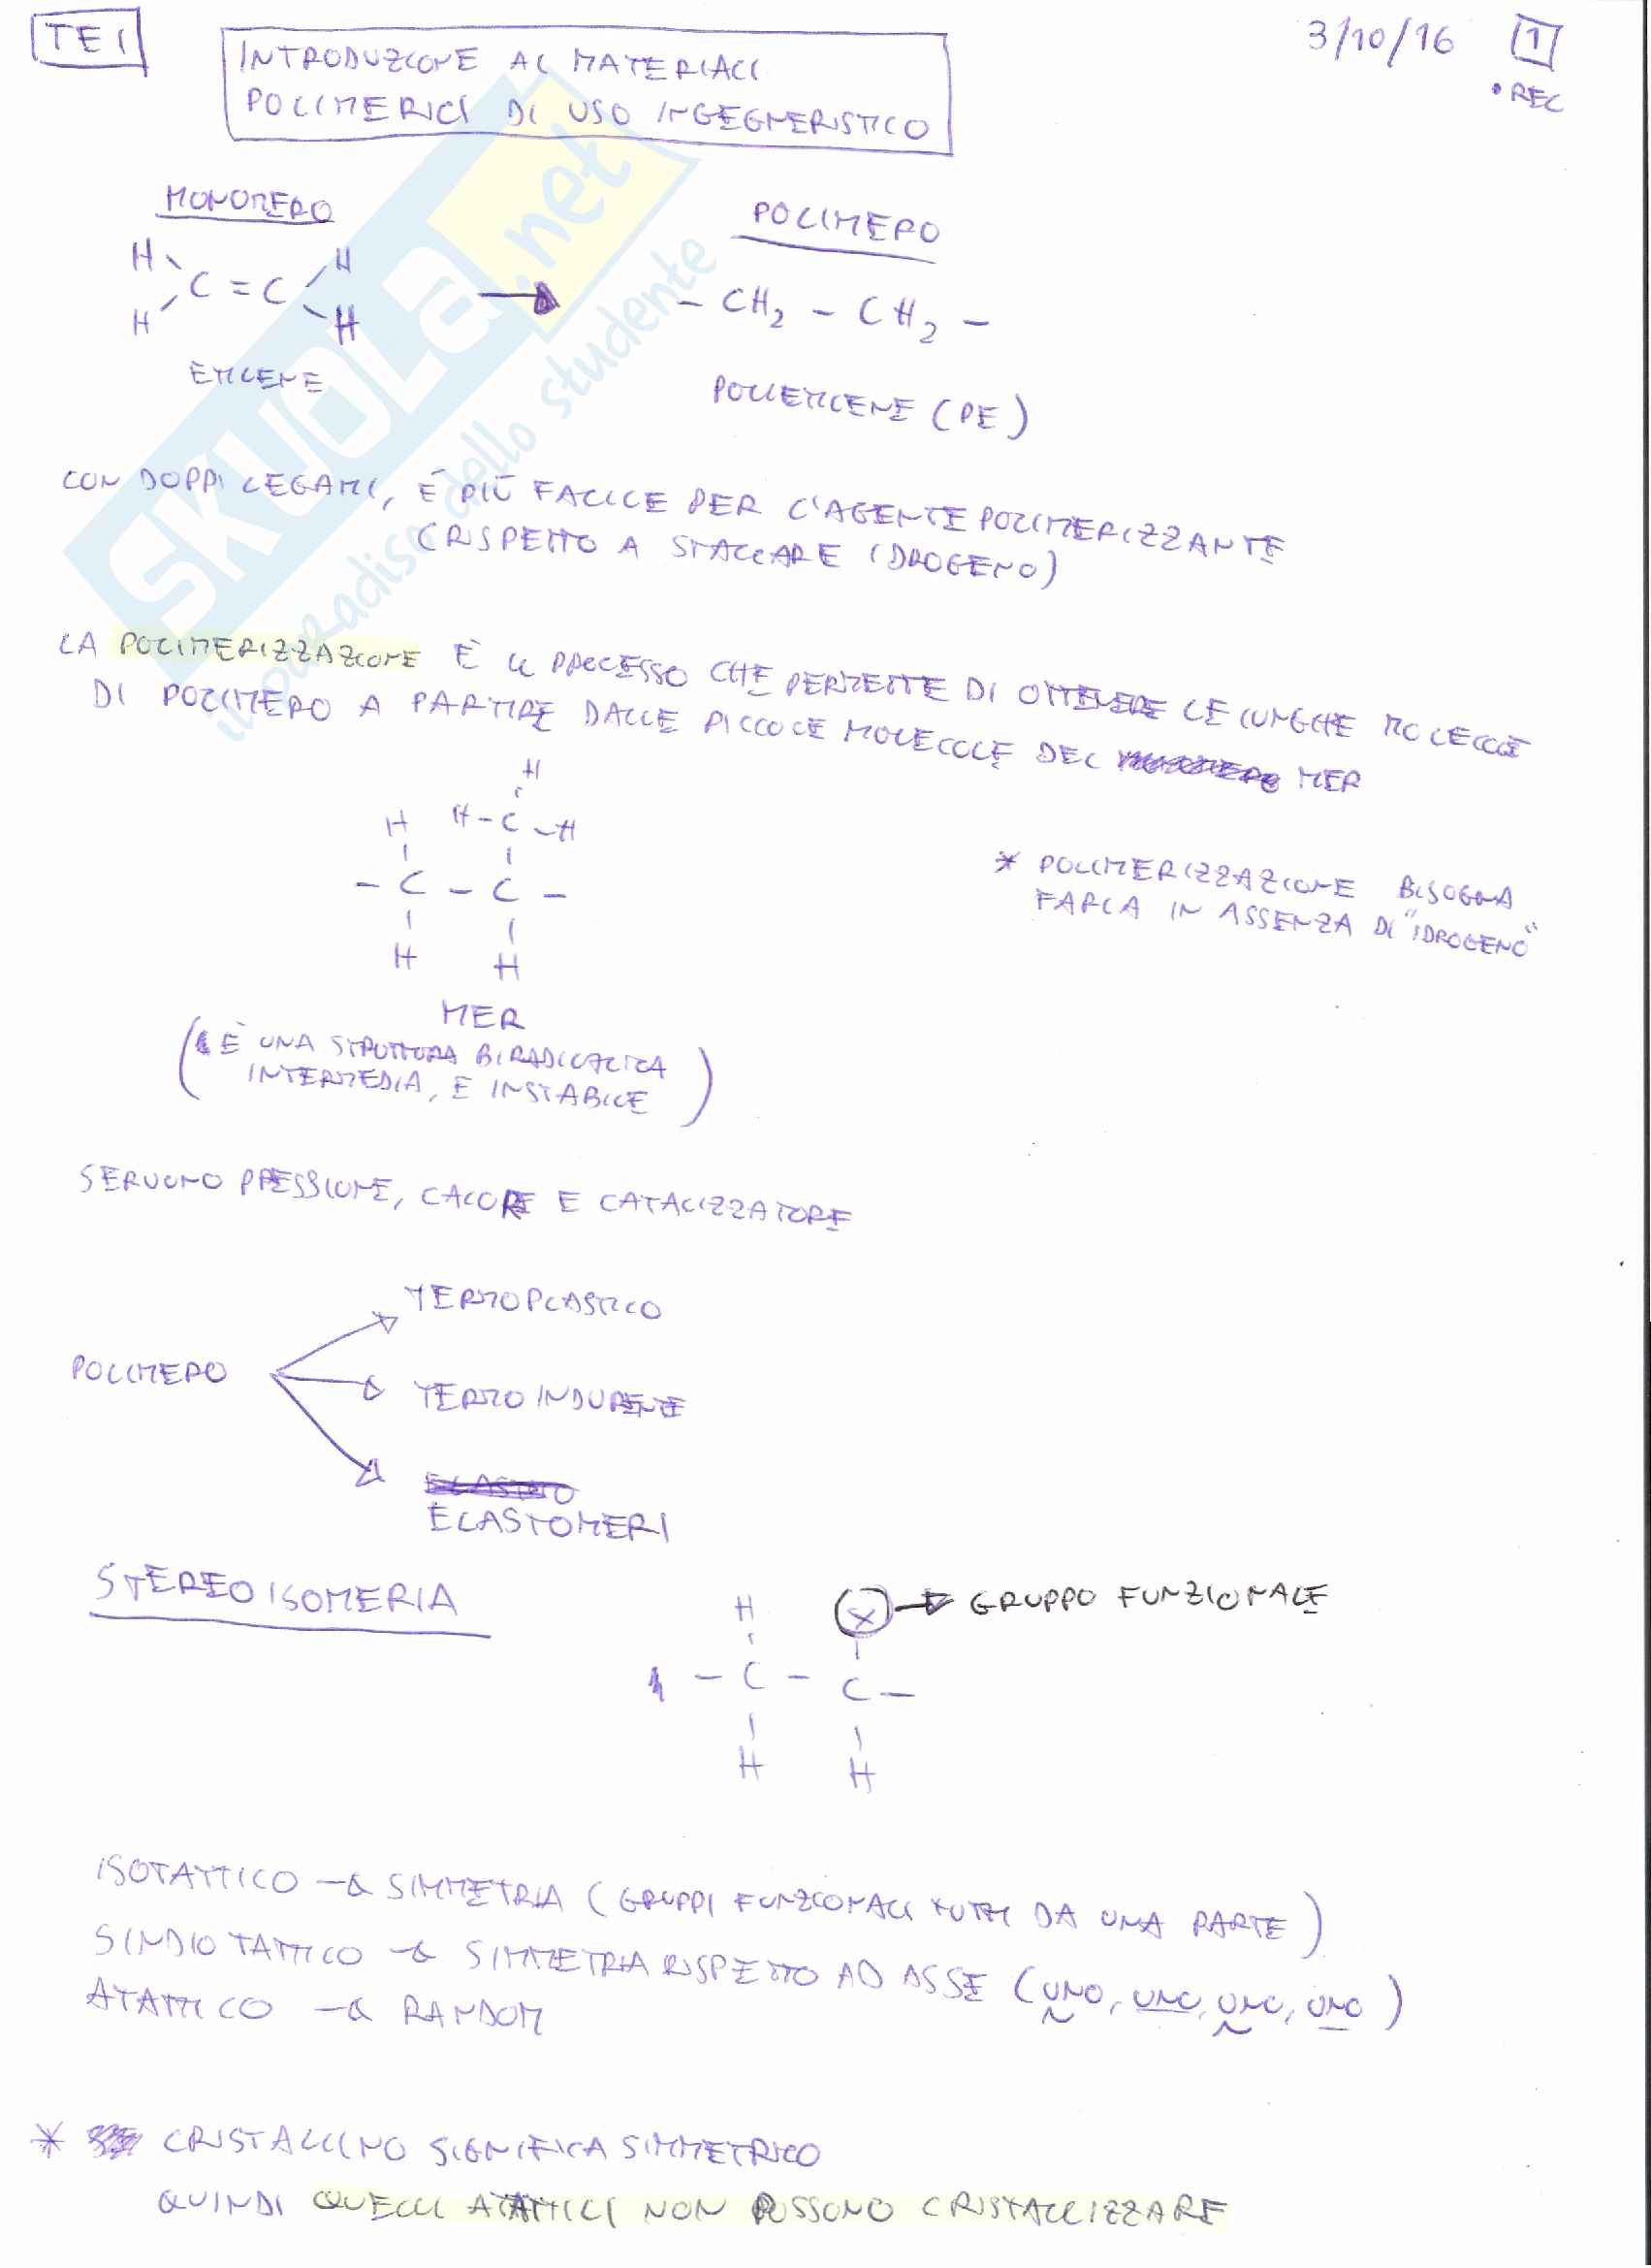 TE1
3/10/16 1
• REC
INTRODUZIONE AI MATERIALI
POLIMERICI DI USO INGEGNERISTICO
MONOMERO
POLIMERO
H H
C = C
H H
- CH2 - CH2 -
ETILENE
POLIETILENE (PE)
CON DOPPI LEGAMI, È PIÙ FACILE PER L'AGENTE POLIMERIZZANTE
(RISPETTO A STACCARE IDROGENO)
LA POLIMERIZZAZIONE È IL PROCESSO CHE PERMETTE DI OTTENERE LE LUNGHE MOLECOLE
DI POLIMERO A PARTIRE DALLE PICCOLE MOLECOLE DEL MER
H
H H - C - H
- C - C -
H H
* POLIMERIZZAZIONE BISOGNA
FARLA IN ASSENZA DI "IDROGENO"
MER
(È UNA STRUTTURA BIRADICALICA
INTERMEDIA, E INSTABILE)
SERVONO PRESSIONE, CALORE E CATALIZZATORE
TERMOPLASTICO
POLIMERO
TERMOINDURENTE
ELASTOMERI
STEREOISOMERIA
H X → GRUPPO FUNZIONALE
- C - C -
H H
ISOTATTICO → SIMMETRIA (GRUPPI FUNZIONALI TUTTI DA UNA PARTE)
SINDIOTATTICO → SIMMETRIA RISPETTO AD ASSE (UNO, UNO, UNO, UNO)
ATATTICO → RANDOM
* CRISTALLINO SIGNIFICA SIMMETRICO
QUINDI QUELLI ATATTICI NON POSSONO CRISTALLIZZARE
SKUOLA.net
il paradiso dello studente